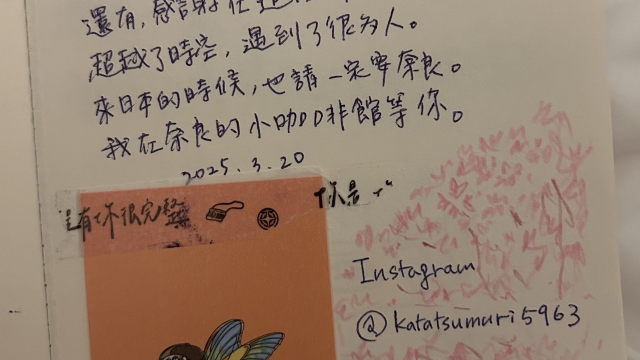 還有,感謝在
超越了時空,遇到了很多人。
來日本的時候,也請一定要奈良。
我在奈良的小咖啡館等你。
2025.3.20
有你很完整
你是
Instagram
@katatsumuri5963